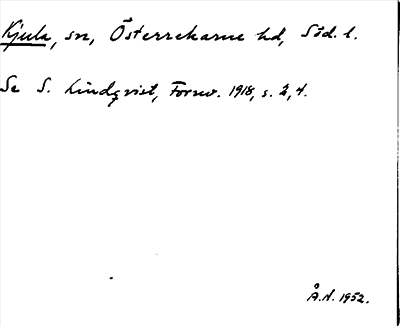 Kjula, sn, Österrekarne hd, Söd. l.
Se S. Lindqvist, Fornv. 1918, s. 2, 4.
Å.N. 1952.